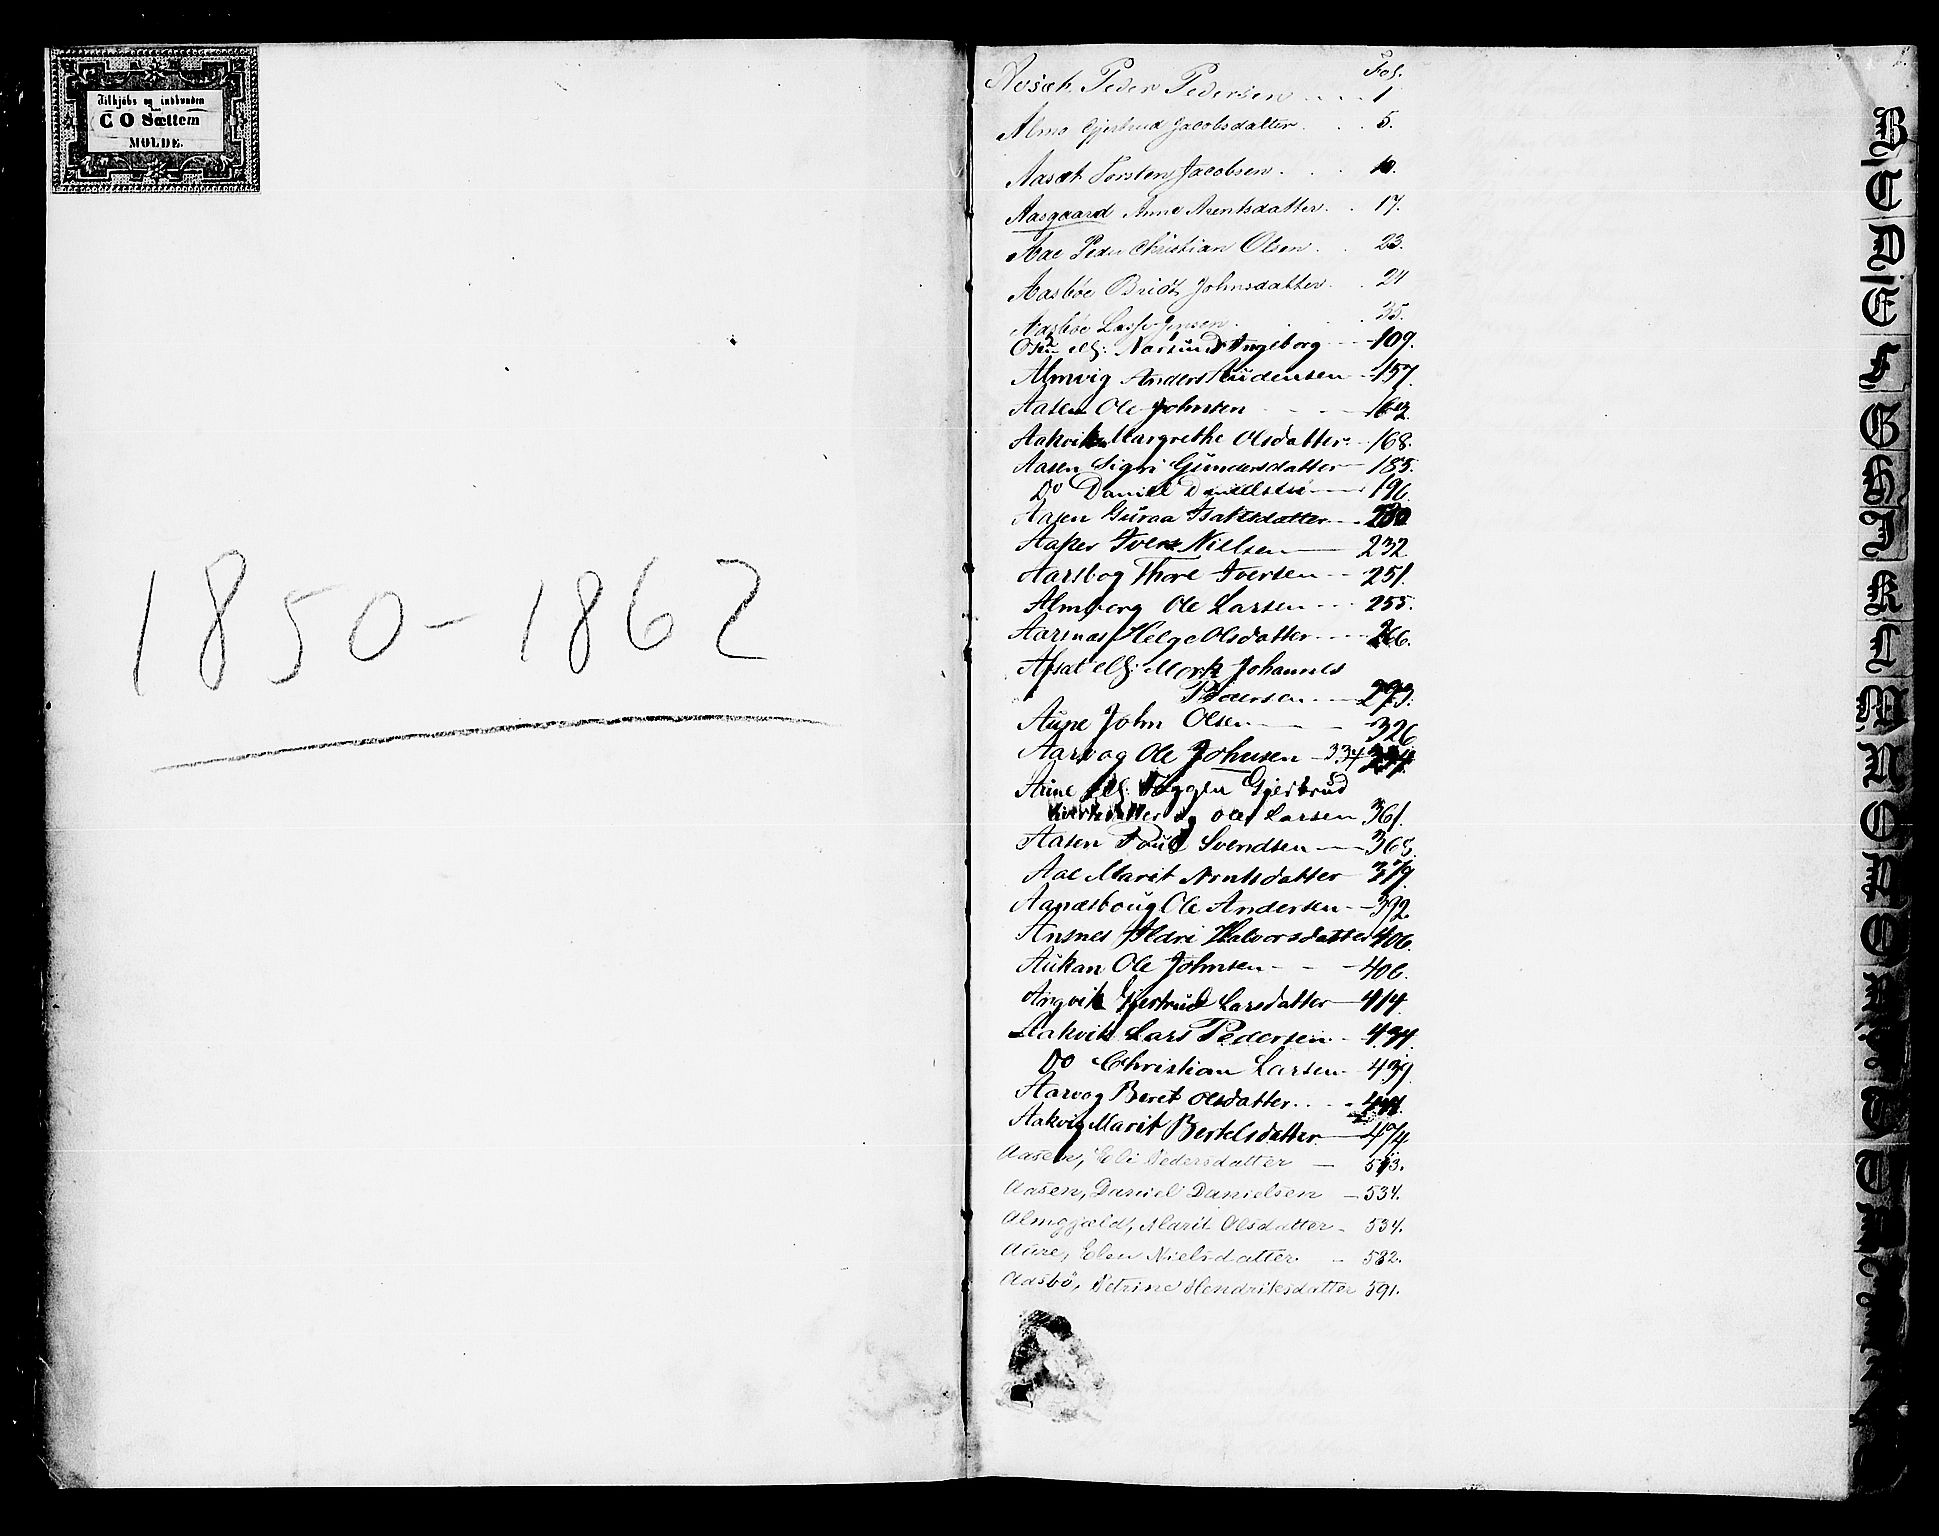 Tilkjøbs og indbunden
C O Sættem
MOLDE.
1850-1862
Fol.
Peder Pedersen .... 1
Almo Gjertrud Jacobsdatter . . . 5.
Aasæt Torsten Jacobsen . . .
Aasgaard Anne Arentsdatter . . 17.
Aae Peder Christian Olsen . . 23.
Aasbøe Johnsdatter . . 24
Aasbøe Jensen . . . 35.
Ingeborg 109.
Almvig Anders Knudensen - 157.
Aasen Ole Johnsen
Aakvik Margrethe Olsdatter. 168.
Aasen Sigri Gundersdatter 185.
Do Daniel 196.
Aasen Guroa Isaksdatter
Iver Nielsen 232
Thore Iversen - - 251.
Almberg Ole Larsen - - - 255.
Aarsnæs Helge Olsdatter - - - 266.
Johannes
Pedersen
Aune John Olsen - 326
Aarvog Ole Johnsen - 334
Gjertrud
og Ole Larsen 361.
Aasen Poul Svendsen - 368.
Aae Marit Arntsdatter 379.
Ole Andersen - 392.
Ansnes Ildri Halvorsdatter 406.
Aukan Ole Johnsen - - - 406.
Angvik Gjertrud Larsdatter - 414.
Aakvik Lars Pedersen - 434.
Do Christian Larsen - 439
Aarvog Beret Olsdatter . . -
Aakvig Marit Bertelsdatter - 474
Aasen, Eli Pedersdatter -
Aasen, Daniel Danielsen - 534.
Almgjæld, Marit Olsdatter - 534.
Aure, Elen Nielsdatter - 582.
Aasbø, Petrine Hendriksdatter 591.
A
B
C
D
E
F
G
H
I
K
L
M
N
O